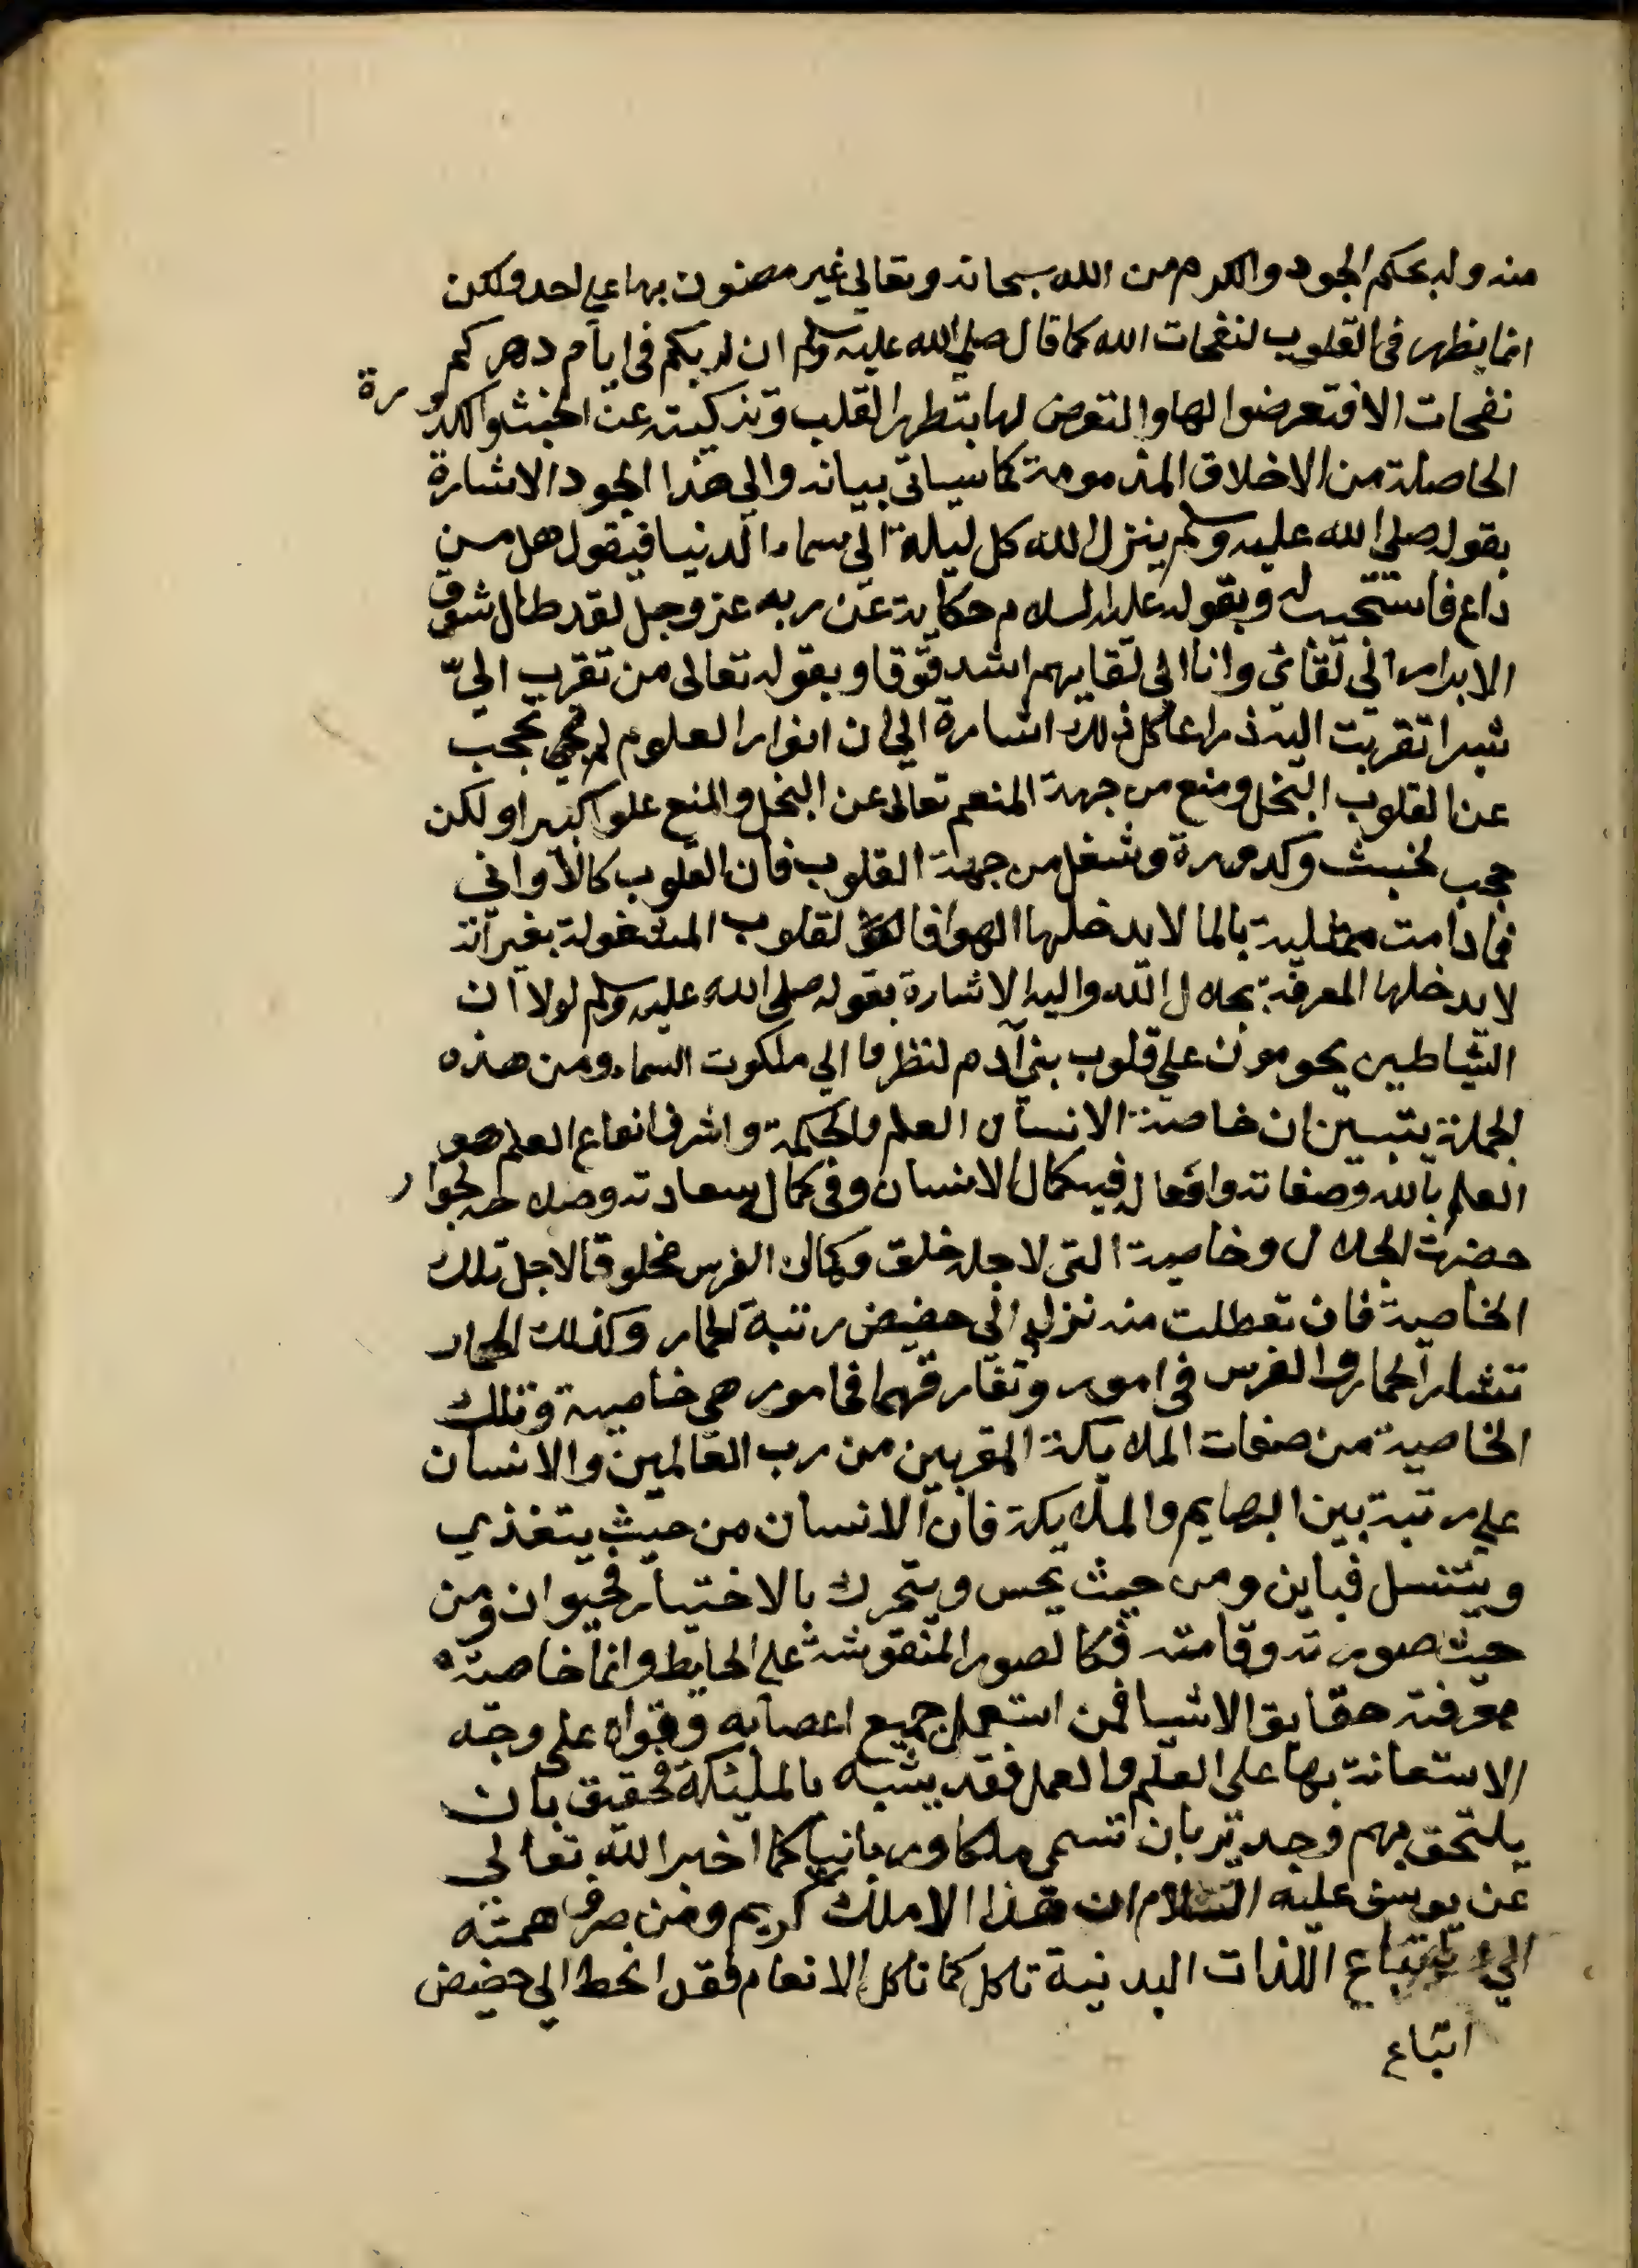 منه وله بحكم الجود والكرم من الله سبحانه وتعالي غير مضنون بها علي احد ولكن
انما يظهر في القلوب لنفحات الله كما قال صلي الله عليه وسلم ان لربكم في ايام دهركم
نفحات الا فتعرضوا لها والتعرض لها بتطهر القلب وتزكيته عن الخبث والكدورة
الحاصلة من الاخلاق المذمومة كما سياتي بيانه والي هذا الجود الاشارة
بقوله صلي الله عليه وسلم ينزل الله كل ليلة الي سماء الدنيا فيقول هل من
داع فاستجيب له وبقوله عليه السلام حكاية عن ربه عز وجل لقد طال شوق
الابرار الي لقائي وانا الي لقايهم اشد قوقا وبقوله تعالى من تقرب اليّ
شبرا تقربت اليه ذراعا كل ذلك اشارة الي ان انوار العلوم لم تحجب
عن القلوب البخل ومنع من جهة المنعم تعالى عن البخل والمنع علوا كبيرا ولكن
حجب لخبث وكدورة وشغل من جهة القلوب فان القلوب كالاواني
فما دامت ممتلية بالما لا يدخلها الهوا فا لقلوب المشغولة بغير الله
لا يدخلها المعرفة بجلال الله واليه الاشارة بقوله صلي الله عليه وسلم لولا ان
الشياطين يحومون علي قلوب بني آدم لنظروا الي ملكوت السماء ومن هذه
الجملة يتبين ان خاصية الانسان العلم والحكمة واشرف انواع العلم هو
العلم بالله وصفاته وافعاله فيه كمال الانسان وفي كمال سعادته وصلاحه لجوار
حضرت الجلال وخاصية التي لاجله خلق وكمال الفرس مخلوقا لاجل تلك
الخاصية فان تعطلت منه نزل الي حضيض رتبة الحمار وكذلك الحمار
تشار الحمار والفرس في امور وتفارقهما في امور هي خاصية وتلك
الخاصية من صفات الملايكة المقربين من رب العالمين والانسان
علي رتبة بين البهايم والملايكة فان الانسان من حيث يتغذي
ويتنسل فباين ومن حيث يحس ويتحرك بالاختيار فحيوان ومن
حيث صورته وقامته فكالصور المنقوشة علي الحايط وانما خاصته
معرفة حقايق الاشيا فمن استعمل جميع اعضايه وقواه على وجه
الاستعانة بها على العلم والعمل فقد يشبه بالمليكة فحقيق بان
يلتحق بهم وجدير بان تسمي ملكا وربانيا كما اخبر الله تعالي
عن يوسف عليه السلام ان هذا الا ملك كريم ومن صرف همته
الي اتباع اللذات البدنية تاكل كما تاكل الانعام فقد انحط الي حضيض
اتباع